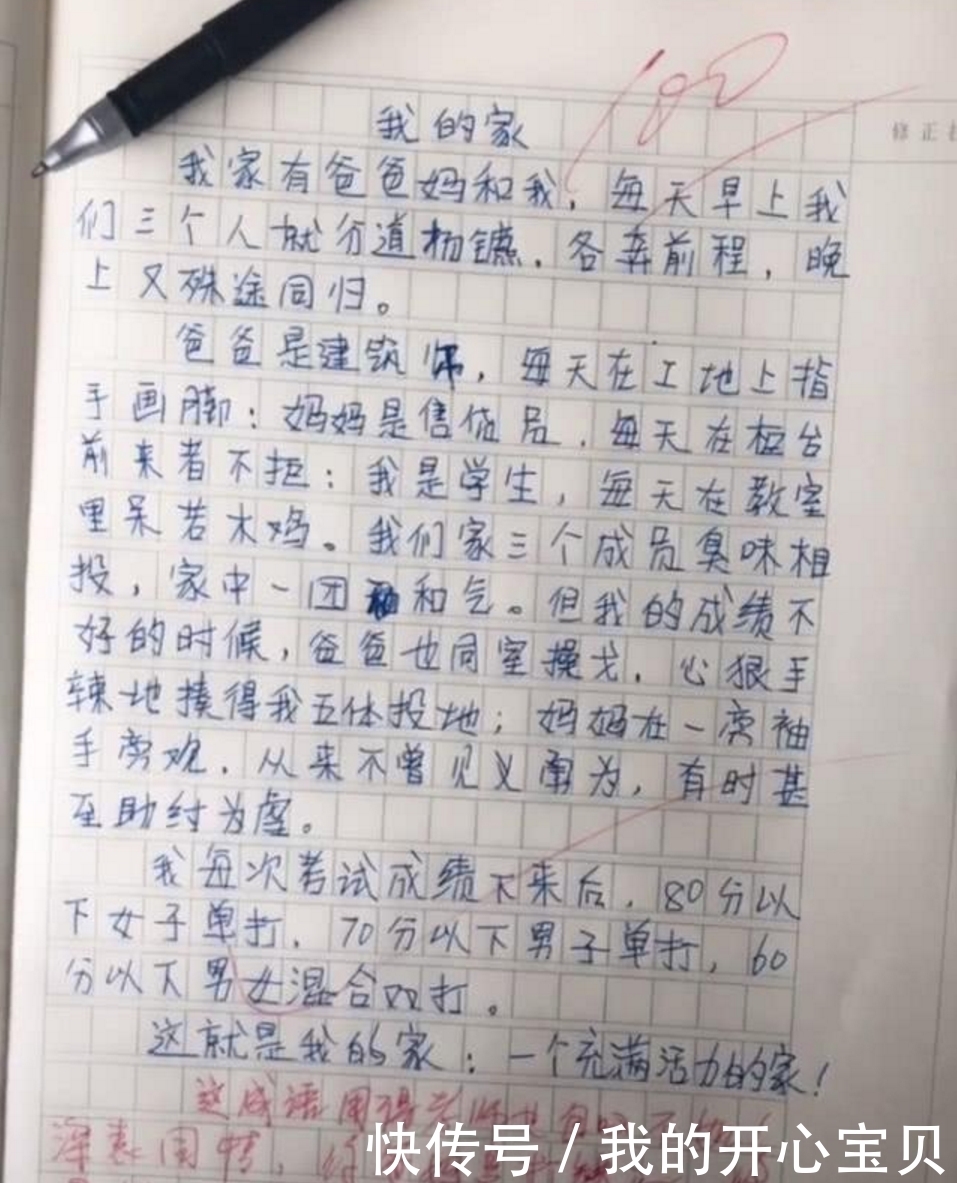 100
修正
我的家
我家有爸爸妈和我，每天早上我
们三个人就分道杨镳，各奔前程，晚
上又殊途同归。
爸爸是建筑师，每天在工地上指
手画脚；妈妈是售货员，每天在柜台
前来者不拒；我是学生，每天在教室
里呆若木鸡。我们家三个成员臭味相
投，家中一团和气。但我的成绩不
好的时候，爸爸也同室操戈，心狠手
辣地揍得我五体投地；妈妈在一旁袖
手旁观，从来不曾见义勇为，有时甚
至助纣为虐。
我每次考试成绩下来后，80分以
下女子单打，70分以下男子单打，60
分以下男女混合双打。
这就是我的家：一个充满活力的家！
这成语用得老师
深表同情，
快传号/我的开心宝贝